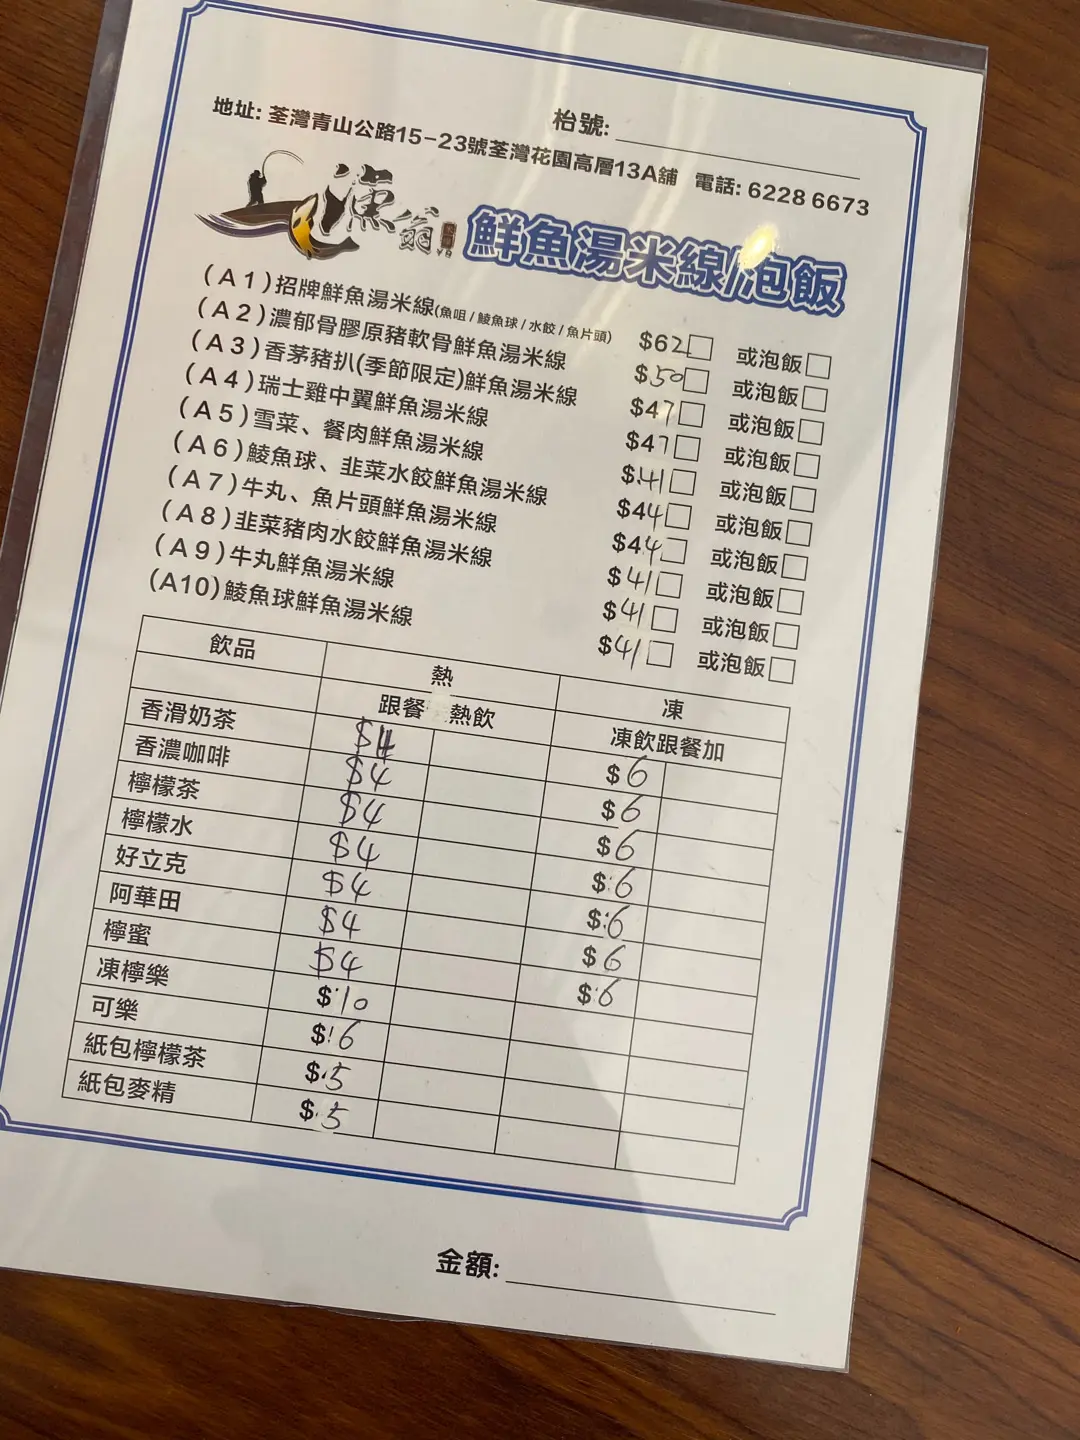 枱號:
地址: 荃灣青山公路15-23號荃灣花園高層13A舖 電話: 6228 6673
漁翁
鮮魚湯米線/泡飯
(A1)招牌鮮魚湯米線(魚咀/鯪魚球/水餃/魚片頭) $62 或泡飯
(A2)濃郁骨膠原豬軟骨鮮魚湯米線 $50 或泡飯
(A3)香茅豬扒(季節限定)鮮魚湯米線 $47 或泡飯
(A4)瑞士雞中翼鮮魚湯米線 $47 或泡飯
(A5)雪菜、餐肉鮮魚湯米線 $41 或泡飯
(A6)鯪魚球、韭菜水餃鮮魚湯米線 $44 或泡飯
(A7)牛丸、魚片頭鮮魚湯米線 $44 或泡飯
(A8)韭菜豬肉水餃鮮魚湯米線 $41 或泡飯
(A9)牛丸鮮魚湯米線 $41 或泡飯
(A10)鯪魚球鮮魚湯米線 $41 或泡飯
飲品 熱 凍
跟餐 熱飲 凍飲跟餐加
香滑奶茶 $4 $6
香濃咖啡 $4 $6
檸檬茶 $4 $6
檸檬水 $4 $6
好立克 $4 $6
阿華田 $4 $6
檸蜜 $4 $6
凍檸樂 $10
可樂 $6
紙包檸檬茶 $5
紙包麥精 $5
金額: